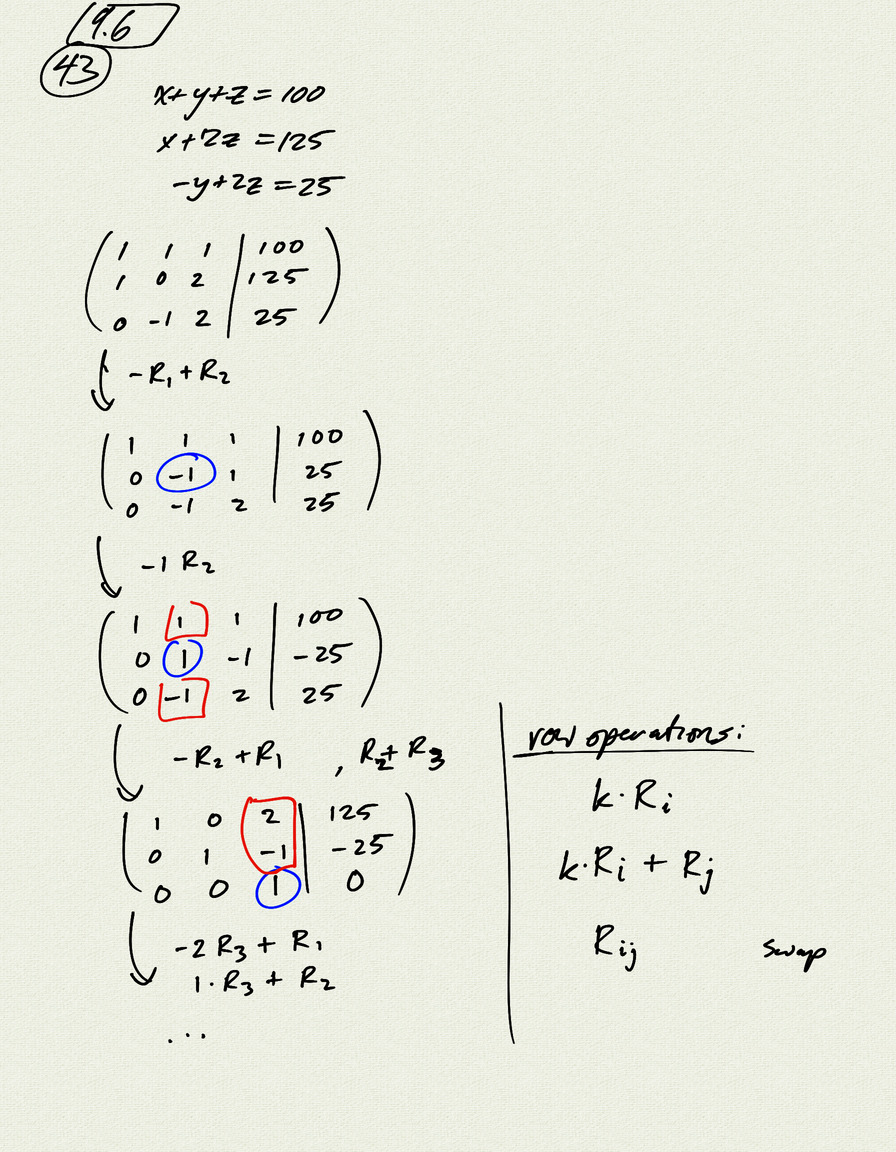 9.6
43
x+y+z=100
x+2z=125
-y+2z=25
( 1 1 1 | 100 )
( 1 0 2 | 125 )
( 0 -1 2 | 25 )
-R₁+R₂
( 1 1 1 | 100 )
( 0 -1 1 | 25 )
( 0 -1 2 | 25 )
-1 R₂
( 1 1 1 | 100 )
( 0 1 -1 | -25 )
( 0 -1 2 | 25 )
-R₂+R₁ , R₂+R₃
( 1 0 2 | 125 )
( 0 1 -1 | -25 )
( 0 0 1 | 0 )
-2 R₃ + R₁
1· R₃ + R₂
...
row operations:
k·Rᵢ
k·Rᵢ + Rⱼ
Rᵢⱼ swap